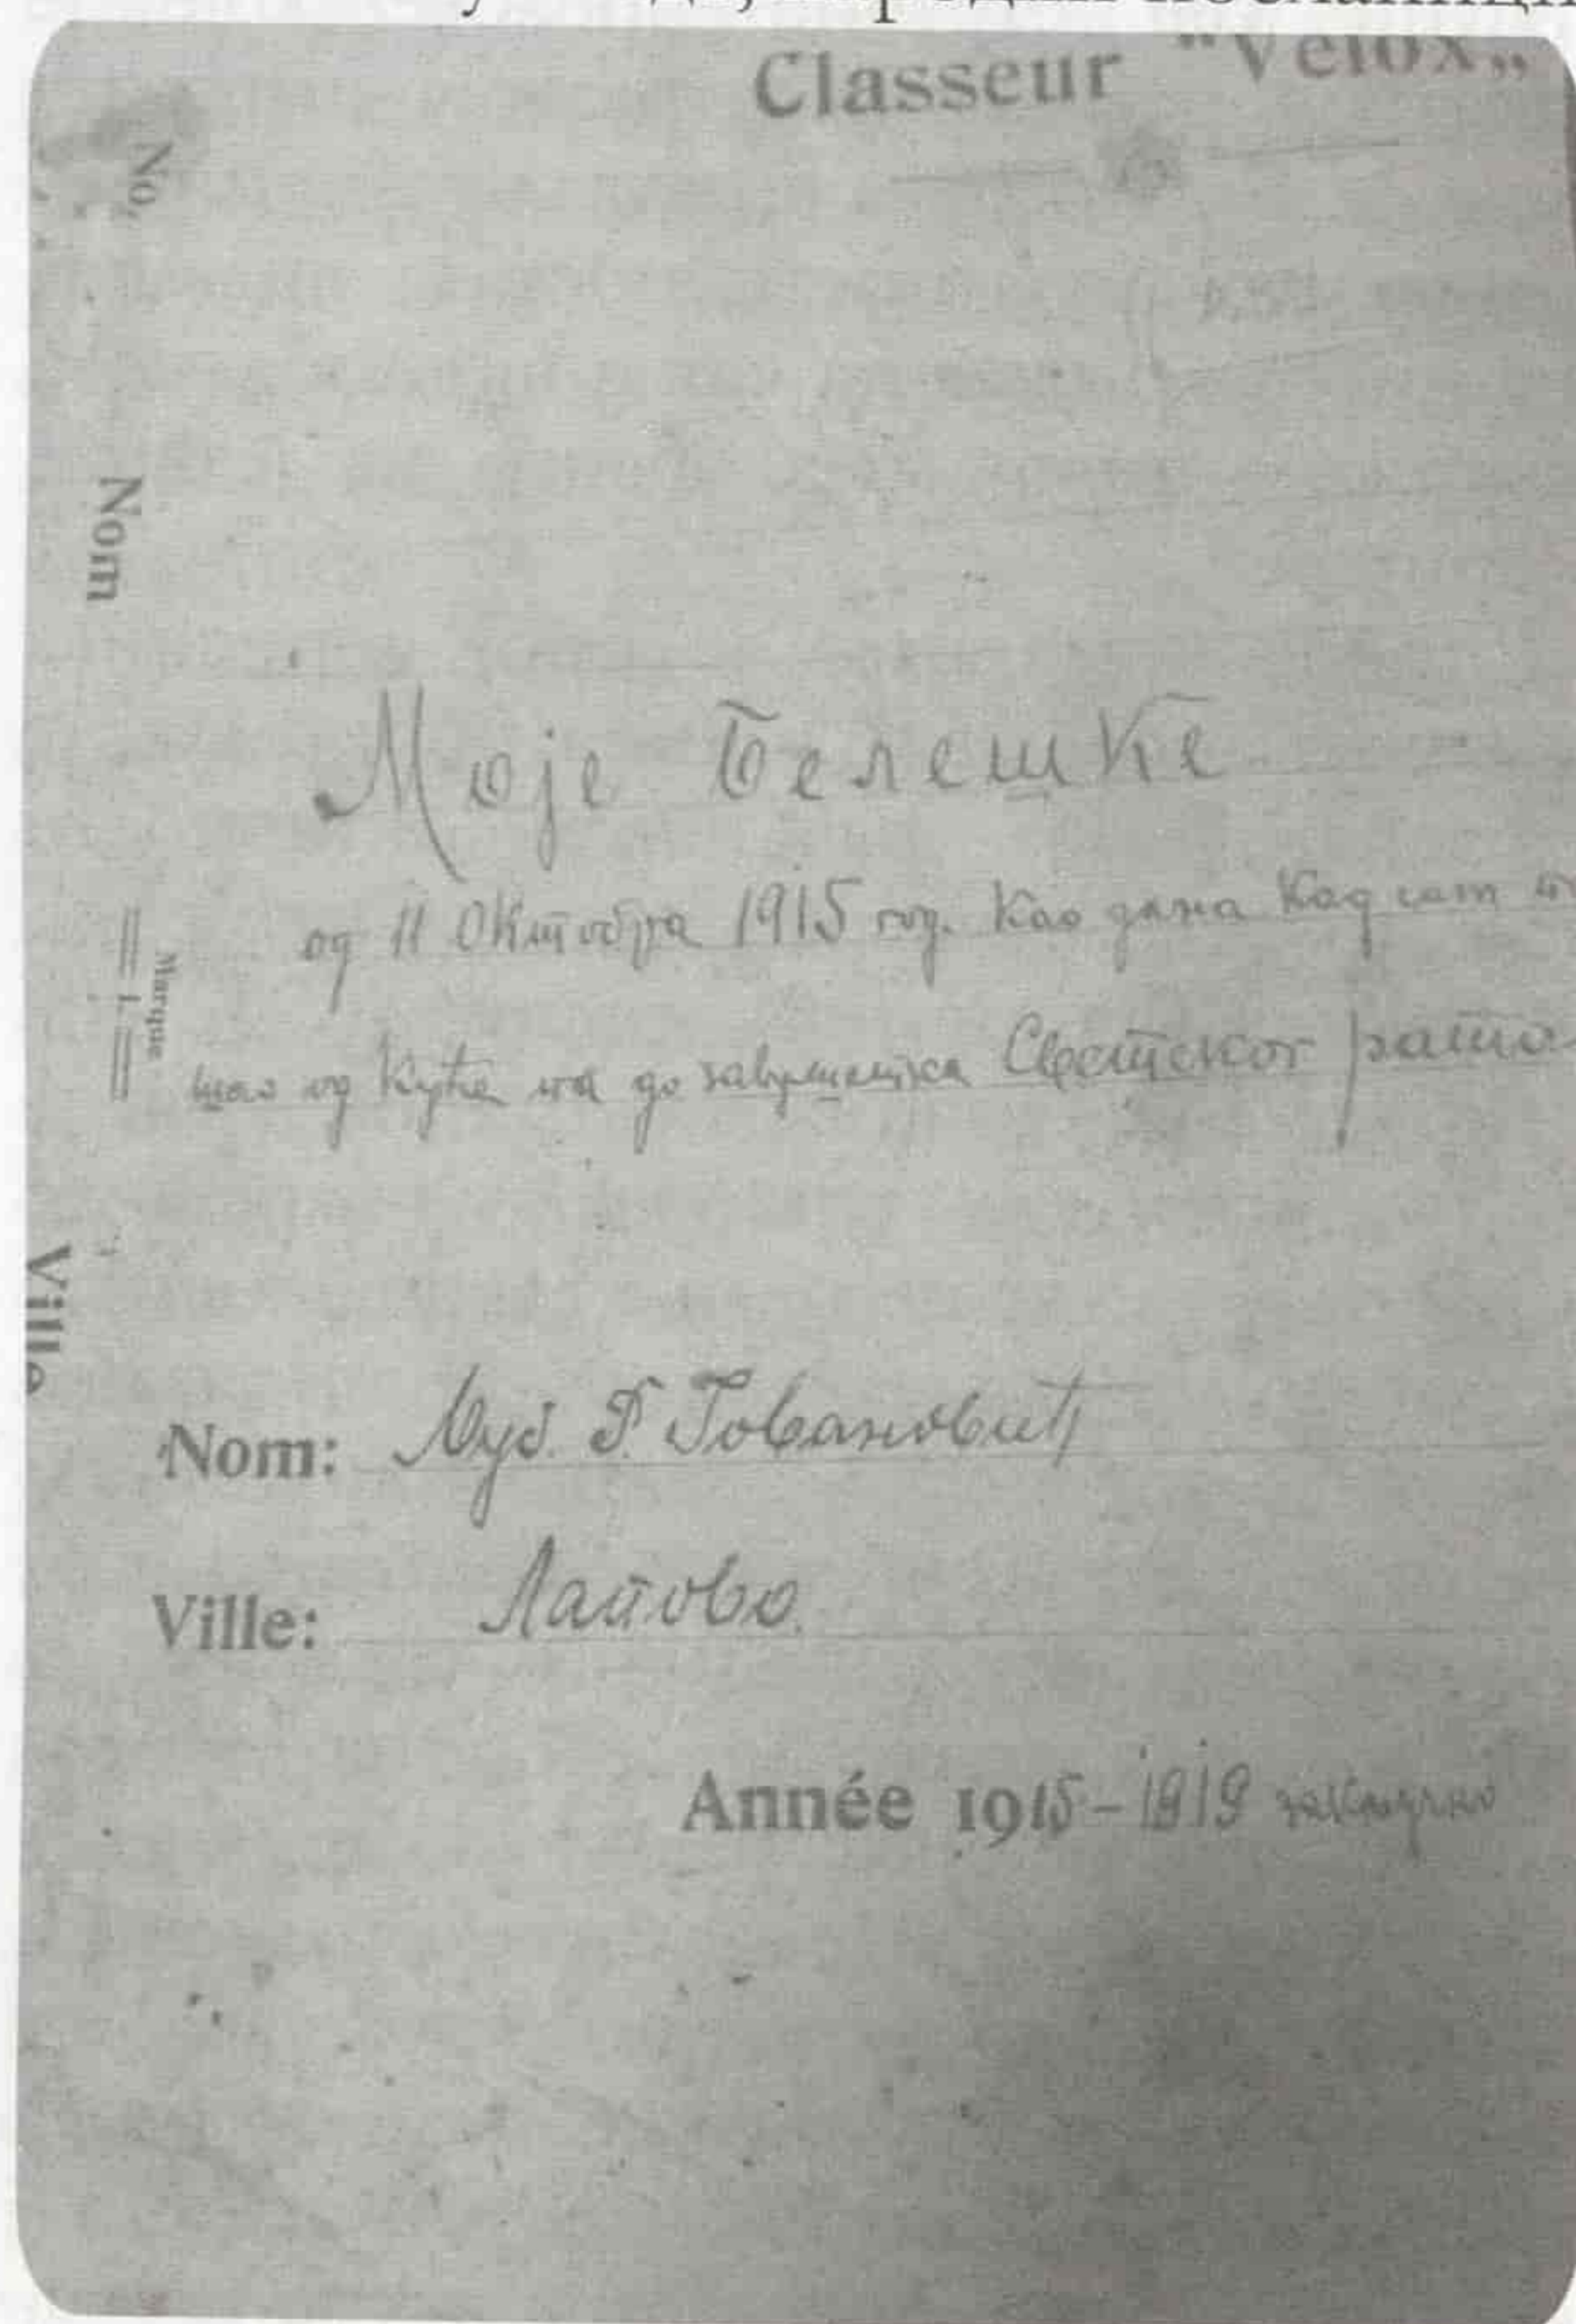 Classeur "Velox„
No,
Nom
Моје белешке
од 11 Октобра 1915 год. Као дана Кад сам
Marque
шао од Куће па до завршетка Светског рата
Ville
Nom: Љуб. Р. Јовановић
Ville: Лапово.
Année 1915-1919 закључно